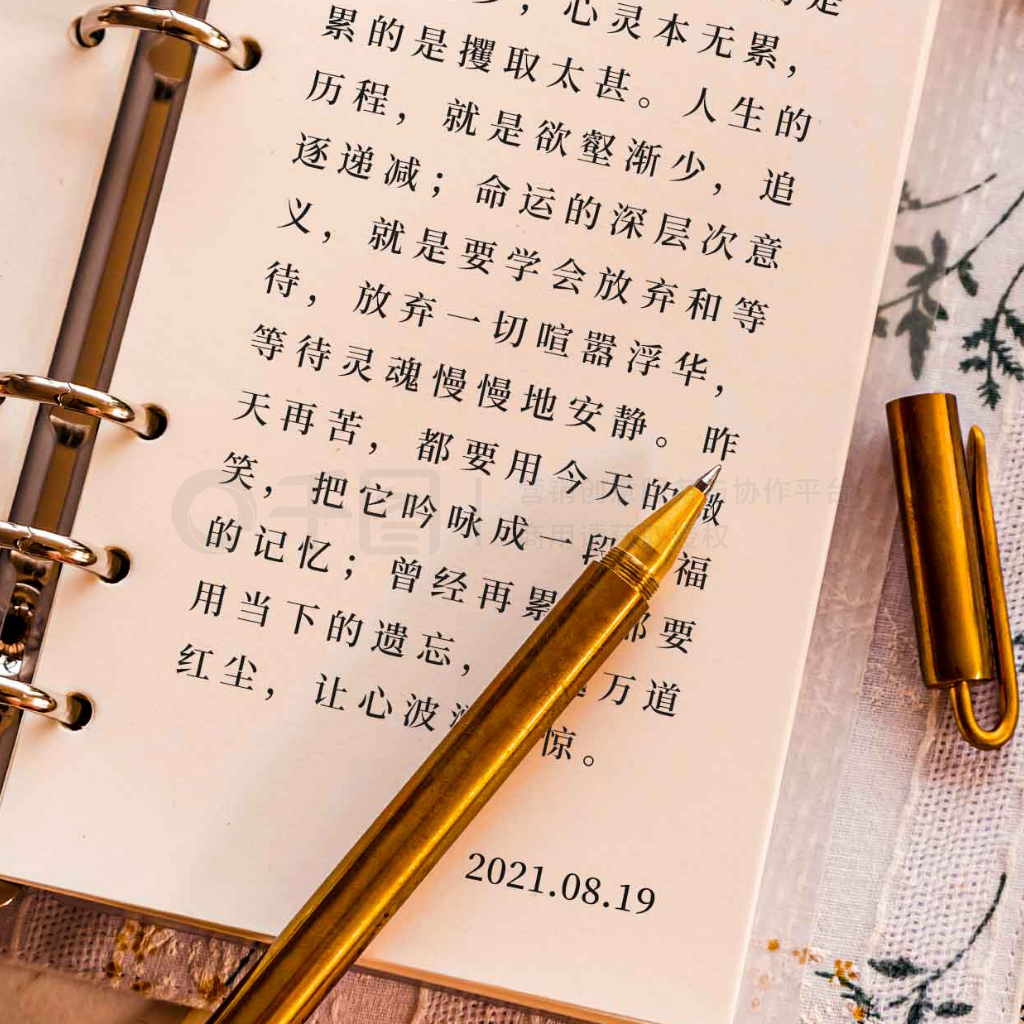 ，心灵本无累，
累的是攫取太甚。人生的
历程，就是欲壑渐少，追
逐递减；命运的深层次意
义，就是要学会放弃和等
待，放弃一切喧嚣浮华，
等待灵魂慢慢地安静。昨
天再苦，都要用今天的微
笑，把它吟咏成一段福
的记忆；曾经再累都要
用当下的遗忘，万道
红尘，让心波惊。
2021.08.19
千图
营销创 协作平台
商用请 授权